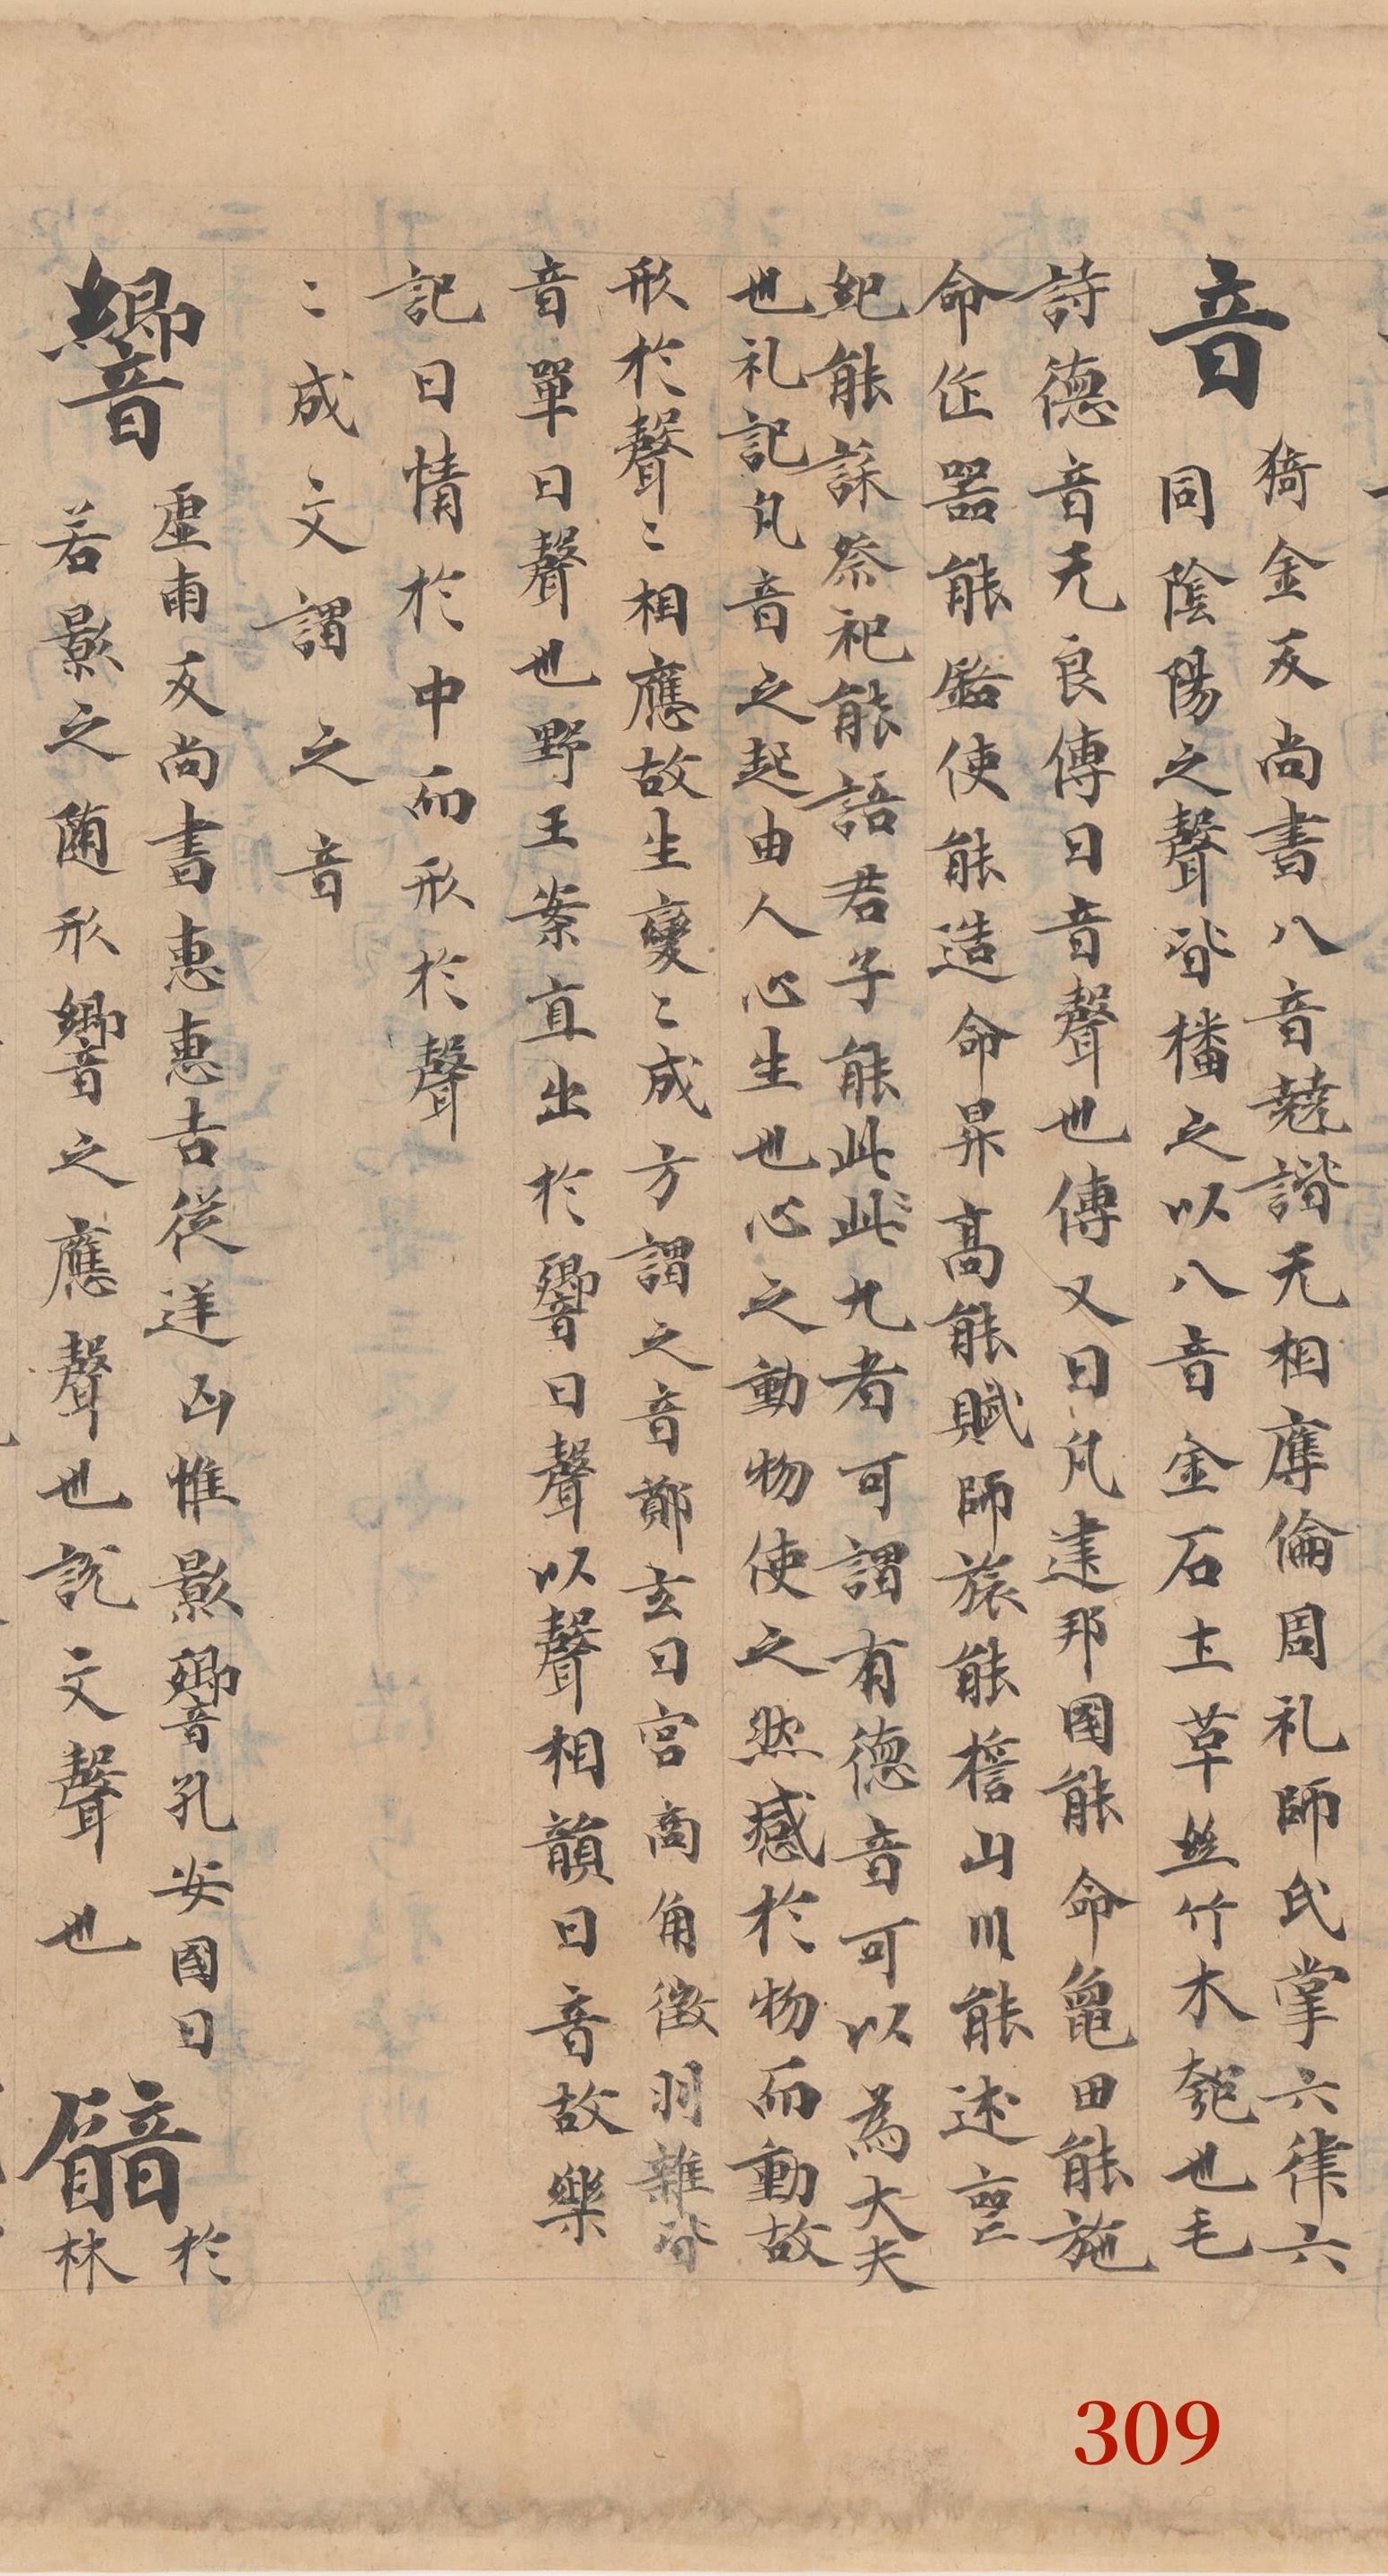 音
猗金反尚書八音克諧无相奪倫周礼師氏掌六律六
同陰陽之聲皆播之以八音金石土革絲竹木匏也毛
詩德音无良傳曰音聲也傳又曰凡建邦国能命龜田能施
命作器能銘使能造命升高能賦師旅能檐山川能述
紀能誄祭祀能語君子能此九者可謂有德音可以為大夫
也礼記凡音之起由人心生也心之動物使之然感於物而動故
形於聲〻相應故生變〻成方謂之音鄭玄曰宮商角徵羽雜皆
音單曰聲也野王案直出於響曰聲以聲相韻曰音故樂
記曰情於中而形於聲
〻成文謂之音
響
虛甫反尚書惠惠吉從逆凶惟影響孔安國曰
若影之随形響之應聲也說文聲也
於
林
309